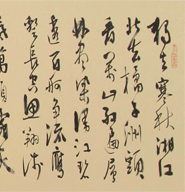 独立寒秋湘江
北去橘子洲头
看万山红遍层
林尽染漫江碧
透百舸争流鹰
击长空鱼翔浅
底万类霜天